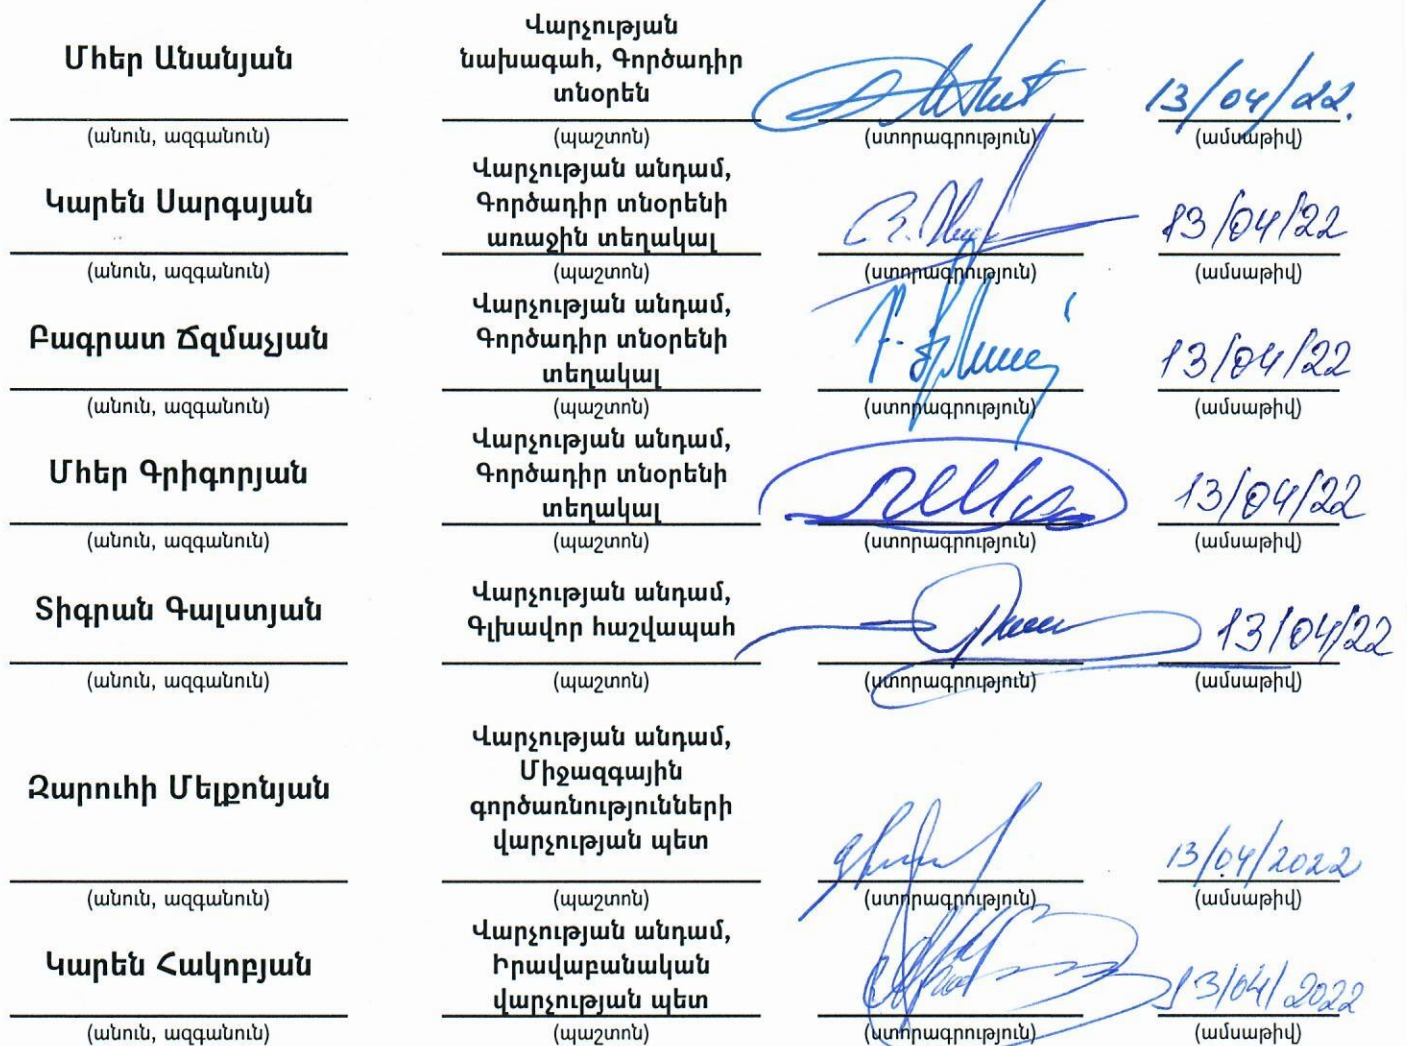 Մհեր Անանյան
Վարչության
նախագահ, Գործադիր
տնօրեն
13/04/22.
(անուն, ազգանուն) (պաշտոն) (ստորագրություն) (ամսաթիվ)
Կարեն Սարգսյան
Վարչության անդամ,
Գործադիր տնօրենի
առաջին տեղակալ
13/04/22
(անուն, ազգանուն) (պաշտոն) (ստորագրություն) (ամսաթիվ)
Բագրատ Ճզմաչյան
Վարչության անդամ,
Գործադիր տնօրենի
տեղակալ
13/04/22
(անուն, ազգանուն) (պաշտոն) (ստորագրություն) (ամսաթիվ)
Մհեր Գրիգորյան
Վարչության անդամ,
Գործադիր տնօրենի
տեղակալ
13/04/22
(անուն, ազգանուն) (պաշտոն) (ստորագրություն) (ամսաթիվ)
Տիգրան Գալստյան
Վարչության անդամ,
Գլխավոր հաշվապահ
13/04/22
(անուն, ազգանուն) (պաշտոն) (ստորագրություն) (ամսաթիվ)
Զարուհի Մելքոնյան
Վարչության անդամ,
Միջազգային
գործառնությունների
վարչության պետ
13/04/2022
(անուն, ազգանուն) (պաշտոն) (ստորագրություն) (ամսաթիվ)
Կարեն Հակոբյան
Վարչության անդամ,
Իրավաբանական
վարչության պետ
13/04/2022
(անուն, ազգանուն) (պաշտոն) (ստորագրություն) (ամսաթիվ)